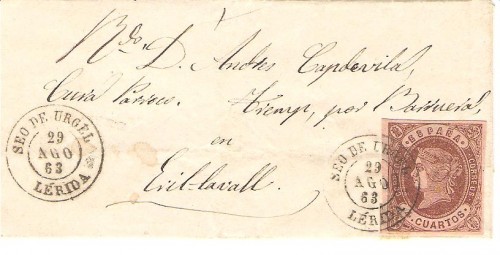 Rdo. D. Andres Capdevila,
Cura Párroco, Tremp, por Barruera,
en
Eril-lavall.
SEO DE URGEL
29
AGO
63
LÉRIDA
SEO DE URGEL
29
AGO
63
LÉRIDA
ESPAÑA
CORREOS
CUARTOS